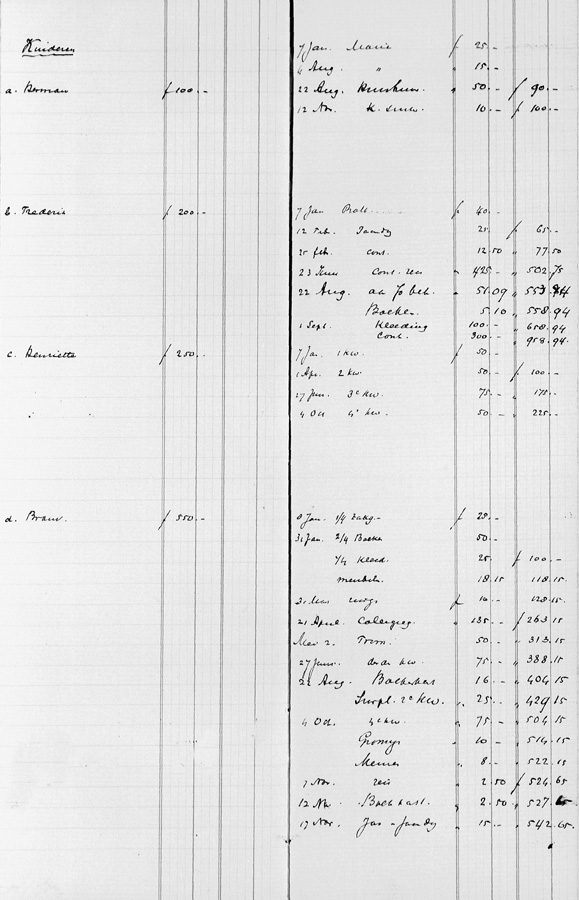 Kinderen
a. Herman f 100.–
7 Jan. Marie f 25.–
4 Aug. " " 15.–
22 Aug. " 50.– f 90.–
12 Nov. K. " 10.– f 100.–
b. Frederik f 200.–
7 Jan f 40.–
12 Feb. 25. f 65.–
25 feb. cont. 12.50 " 77.50
23 Juni cont. reis " 425.– " 502.75
22 Aug. aan Jo bet. " 51.09 " 553.94
Boeken 5.10 " 558.94
1 Sept. Kleeding 100.– " 658.94
Cont. 300.– " 958.94.
c. Henriette f 250.–
7 Ja. 1 kw. f 50.–
1 Apr. 2 kw 50.– f 100.–
27 Jun. 3e kw. 75.– " 175.–
4 Oct 4e kw. 50.– " 225.–
d. Bram. f 550.–
8 Jan. 1/4 f 25.–
31 Jan. 2/4 Boeken 50.–
1/4 Kleed. 25. f 100.–
18.15 118.15
31 Mrt f 10.– 128.15.
21 April. Collegeg. " 135.– f 263.15
Mei 2. 50.– " 313.15
27 Juni. derde kw. 75.– " 388.15
22 Aug. Boekenkast 16.– " 404.15
Suppl. 2e kw. " 25.– " 429.15
4 Oct. 4e kw. " 75.– " 504.15
" 10.– " 514.15
" 8.– " 522.15
7 Nov. reis " 2.50 f 524.65
12 Nov. Boekkast. " 2.50 " 527.65
17 Nov. Jas – " 15.– " 542.65.